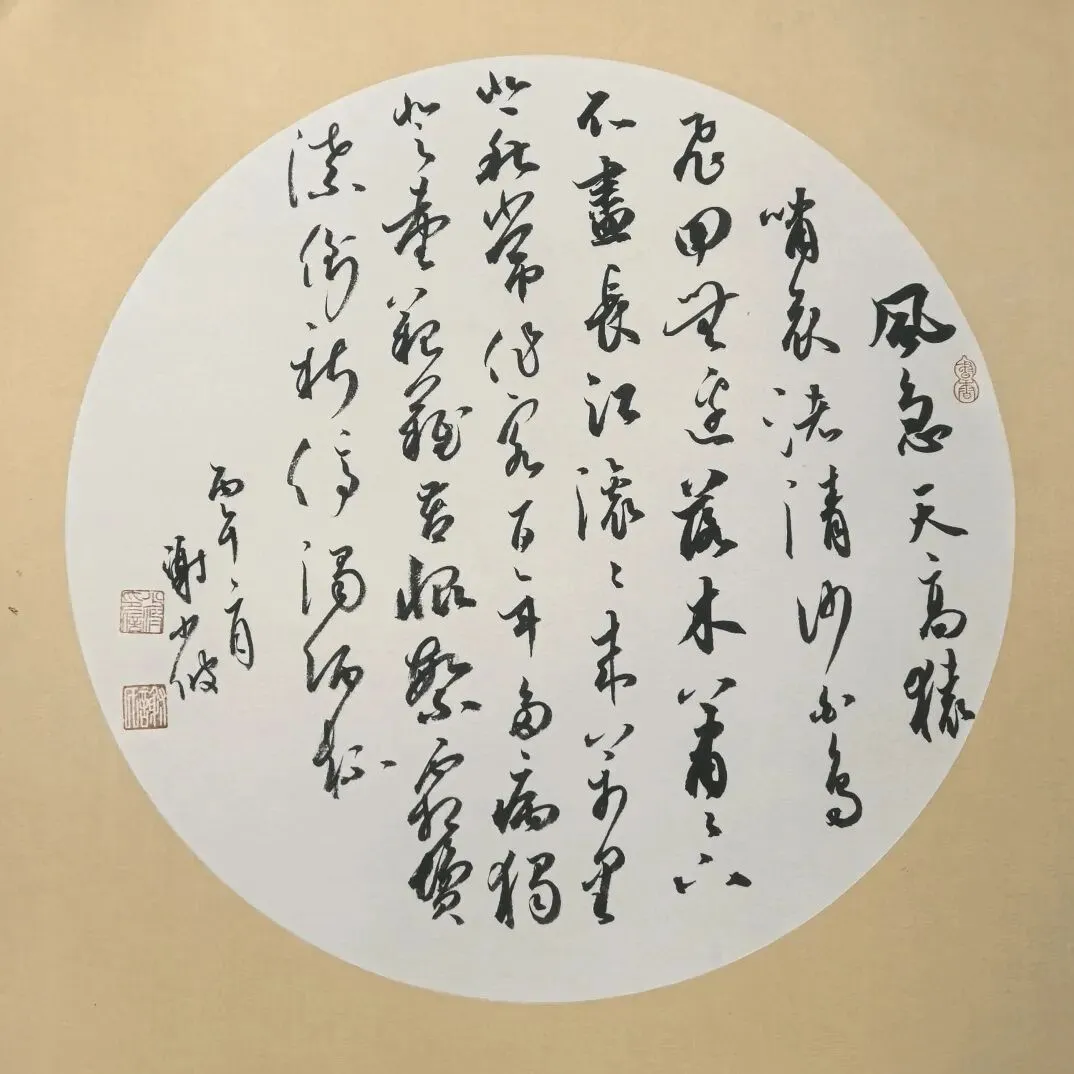 風急天高猿
嘯哀渚清沙白鳥
飛回無邊落木蕭〻下
不盡長江滾〻來萬里
悲秋常作客百年多病獨
登臺艱難苦恨繁霜鬢
潦倒新停濁酒杯
丙午二月
謝少波